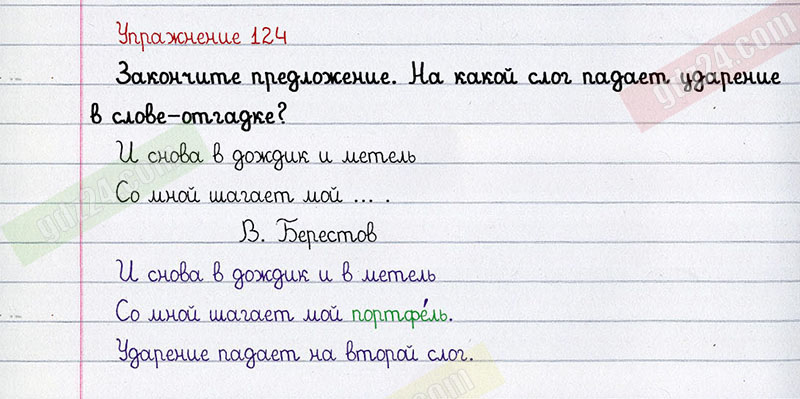 Упражнение 124
Закончите предложение. На какой слог падает ударение
в слове-отгадке?
И снова в дождик и метель
Со мной шагает мой ... .
В. Берестов
И снова в дождик и в метель
Со мной шагает мой портфе́ль.
Ударение падает на второй слог.
gdz24.com
gdz24.com
gdz24.com